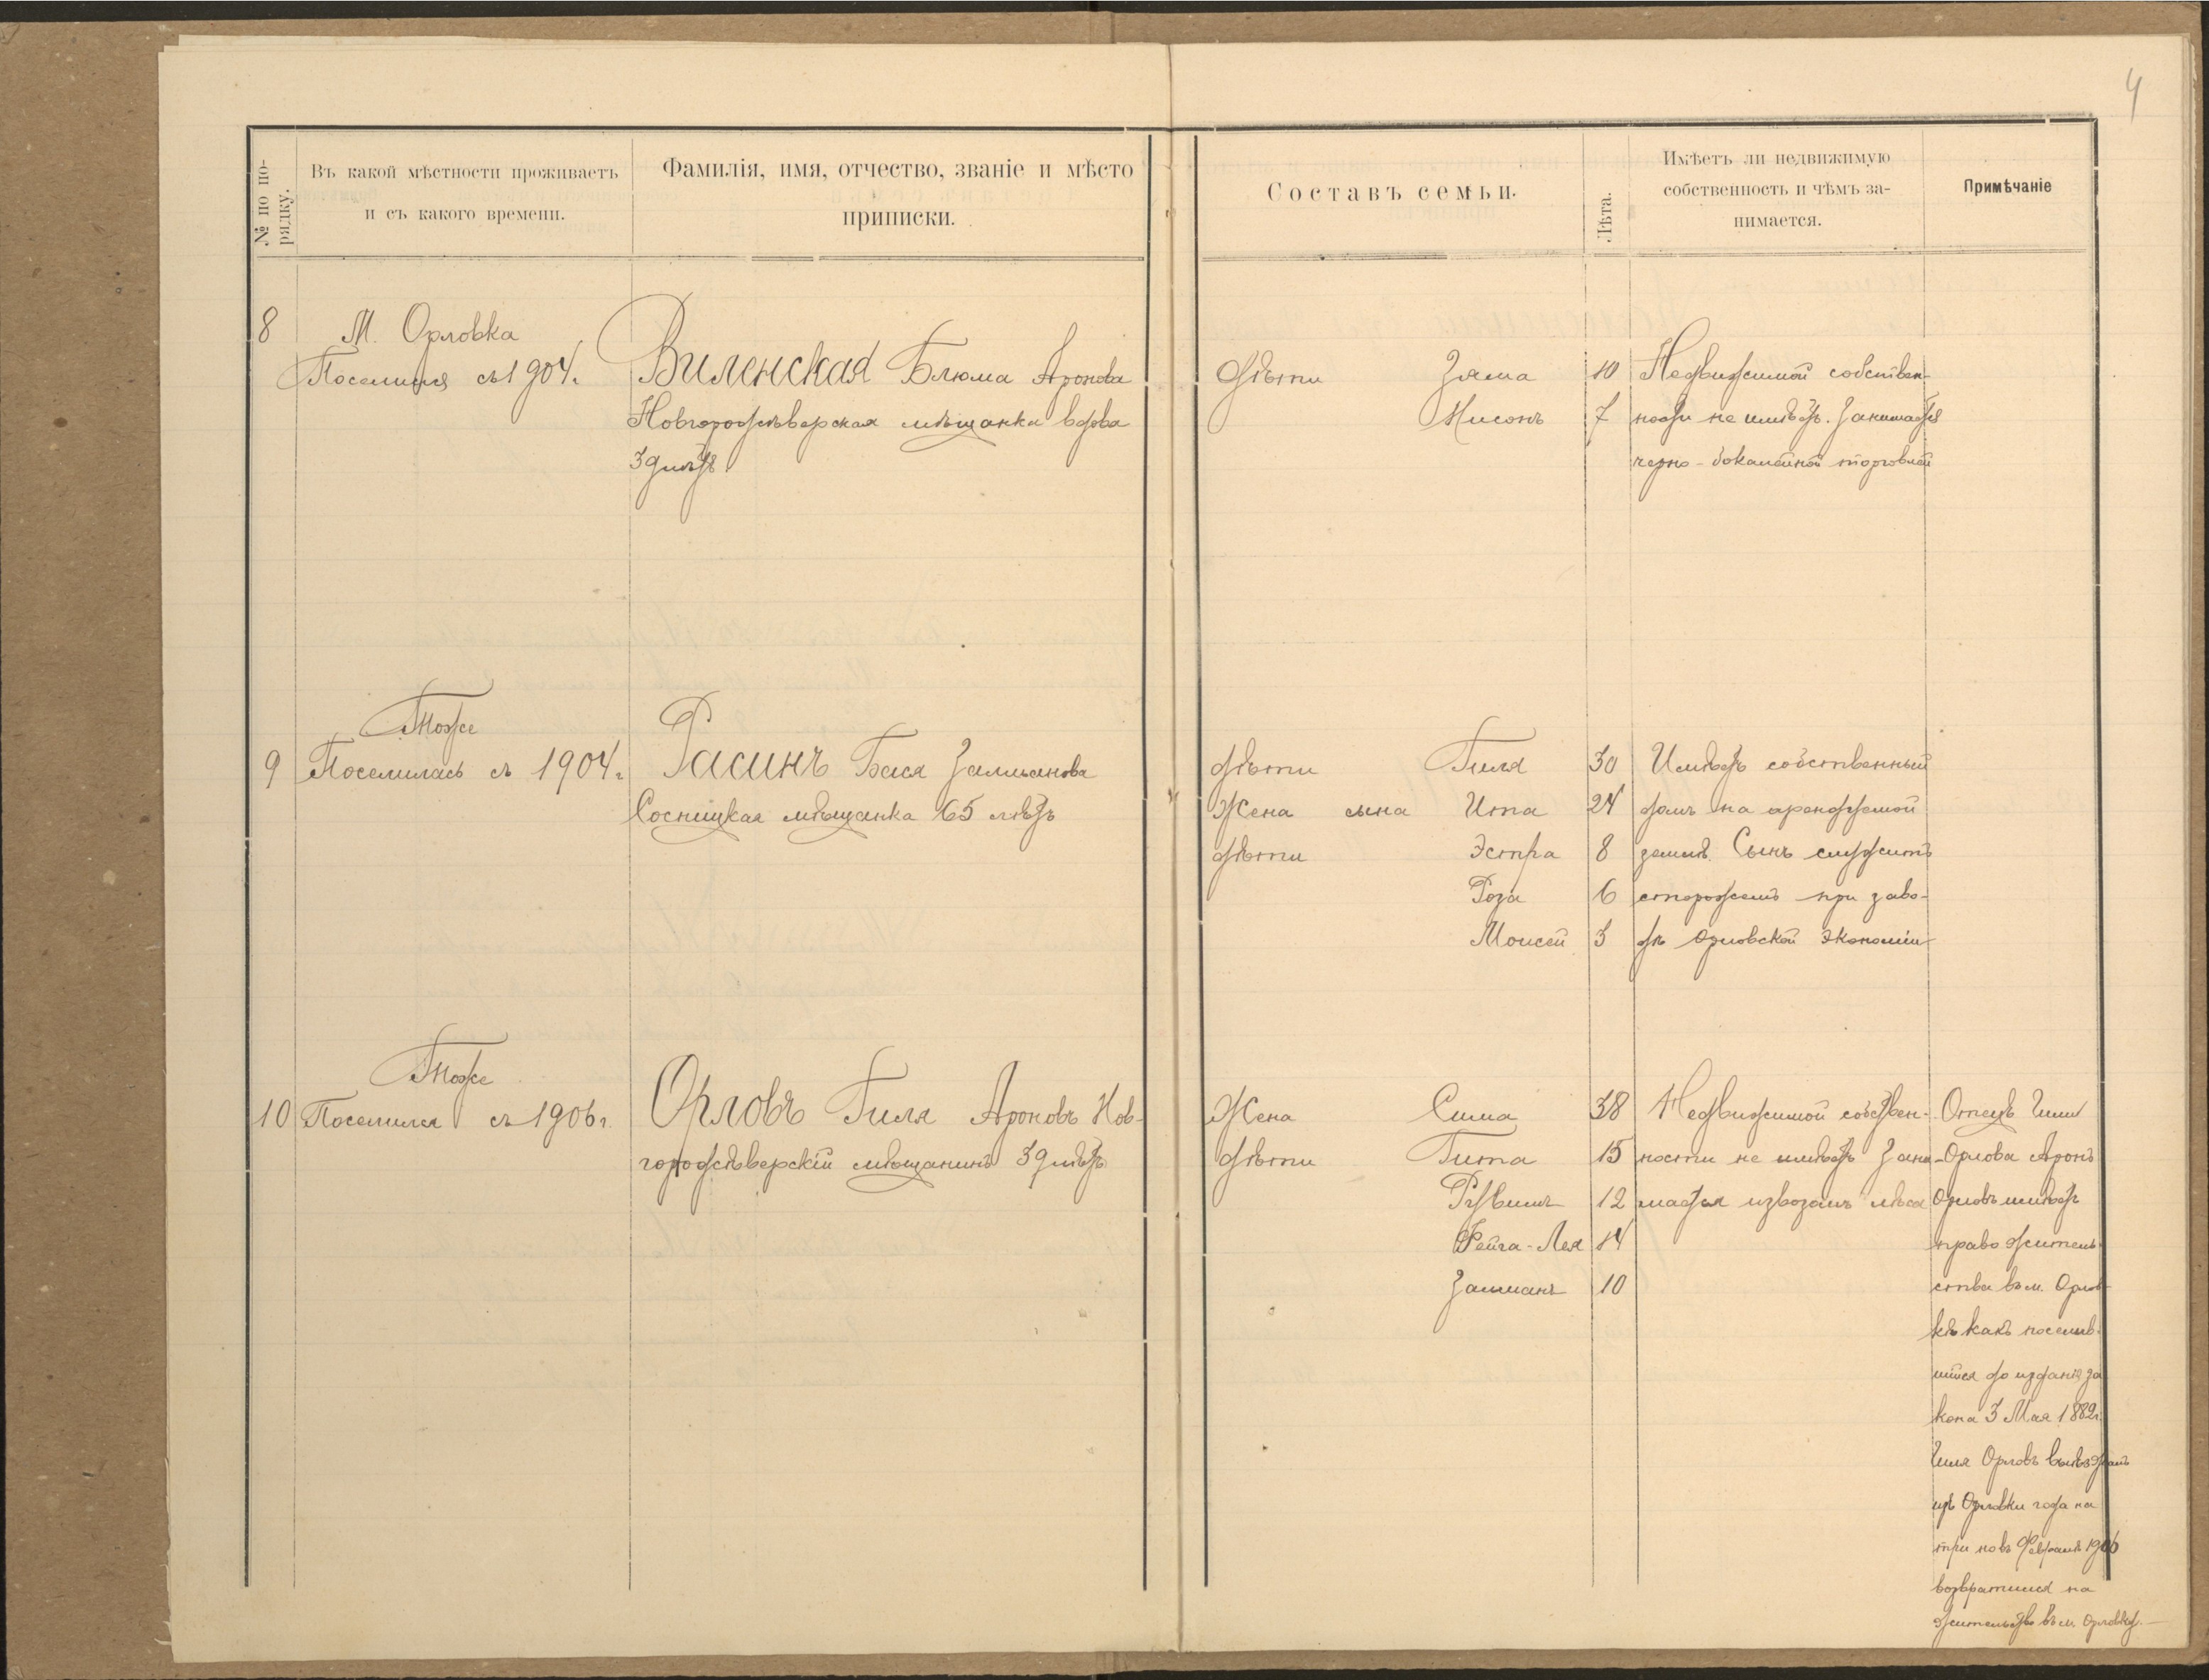 4
№ по по-
рядку.
Въ какой мѣстности проживаетъ
и съ какого времени.
Фамилія, имя, отчество, званіе и мѣсто
приписки.
Составъ семьи.
Лѣта.
Имѣетъ ли недвижимую
собственность и чѣмъ за-
нимается.
Примѣчаніе
8 М. Орловка
Поселился съ 1904.
Виленская Блюма Аронова
Новгородсѣверская мѣщанка вдова
39 лѣтъ
Дѣти Зяма 10
Нисонъ 7
Недвижимой собствен-
ности не имѣетъ. Занимается
черно-бокалейной торговлей
9 Тоже
Поселилась съ 1904 г.
Расинъ Бася Залманова
Сосницкая мѣщанка 65 лѣтъ
дѣти Гиля 30
Жена сына Ита 24
дѣти Эстра 8
Роза 6
Моисей 3
Имѣетъ собственный
домъ на арендуемой
землѣ. Сынъ служитъ
сторожемъ при заво-
дѣ Орловской Экономіи
10 Тоже
Поселился съ 1906 г.
Орловъ Гиля Ароновъ Нов-
городсѣверскій мѣщанинъ 39 лѣтъ
Жена Сима 38
дѣти Гита 15
Рувимъ 12
Фейга-Лея 14
Залманъ 10
Недвижимой собствен-
ности не имѣетъ Зани-
мается извозомъ лѣса
Отецъ Гили
Орлова Аронъ
Орловъ имѣетъ
право житель-
ства въ м. Орлов-
кѣ какъ поселив-
шійся до изданія за
кона 3 Мая 1882 г.
Гиля Орловъ выѣзжалъ
изъ Орловки года на
три но въ Февралѣ 1906
возвратился на
жительство въ м. Орловку.